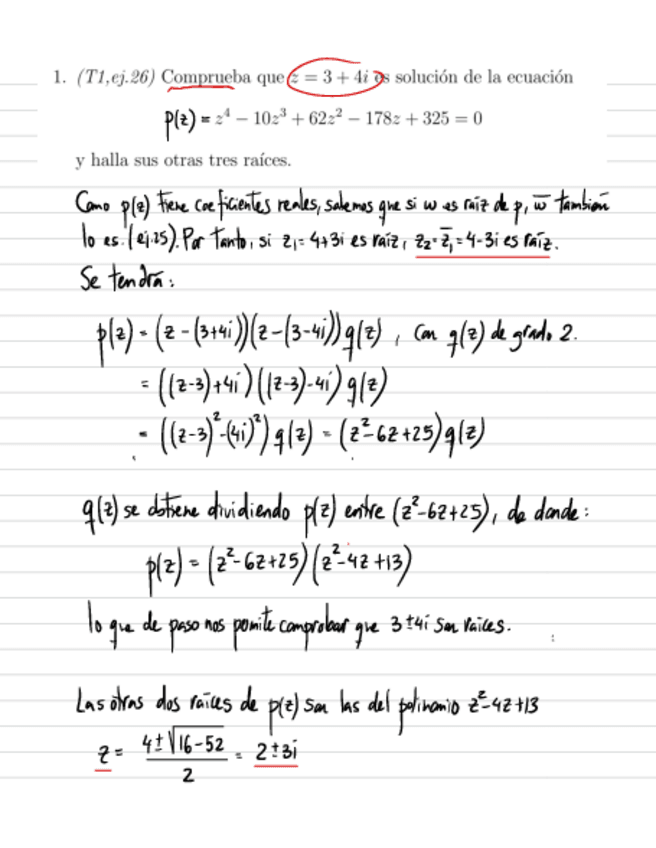 1. (T1,ej.26) Comprueba que z = 3 + 4i es solución de la ecuación
p(z) = z⁴ − 10z³ + 62z² − 178z + 325 = 0
y halla sus otras tres raíces.
Como p(z) tiene coeficientes reales, sabemos que si w es raíz de p, w̅ también
lo es. (ej.25). Por tanto, si z₁ = 4+3i es raíz, z₂ = z̅₁ = 4-3i es raíz.
Se tendrá:
p(z) = (z - (3+4i))(z - (3-4i)) q(z), con q(z) de grado 2.
= ((z-3)+4i)((z-3)-4i) q(z)
= ((z-3)² - (4i)²) q(z) = (z²-6z+25) q(z)
q(z) se obtiene dividiendo p(z) entre (z²-6z+25), de donde:
p(z) = (z²-6z+25)(z²-4z+13)
lo que de paso nos permite comprobar que 3±4i son raíces.
Las otras dos raíces de p(z) son las del polinomio z²-4z+13
z = (4±√(16-52))/2 = 2±3i